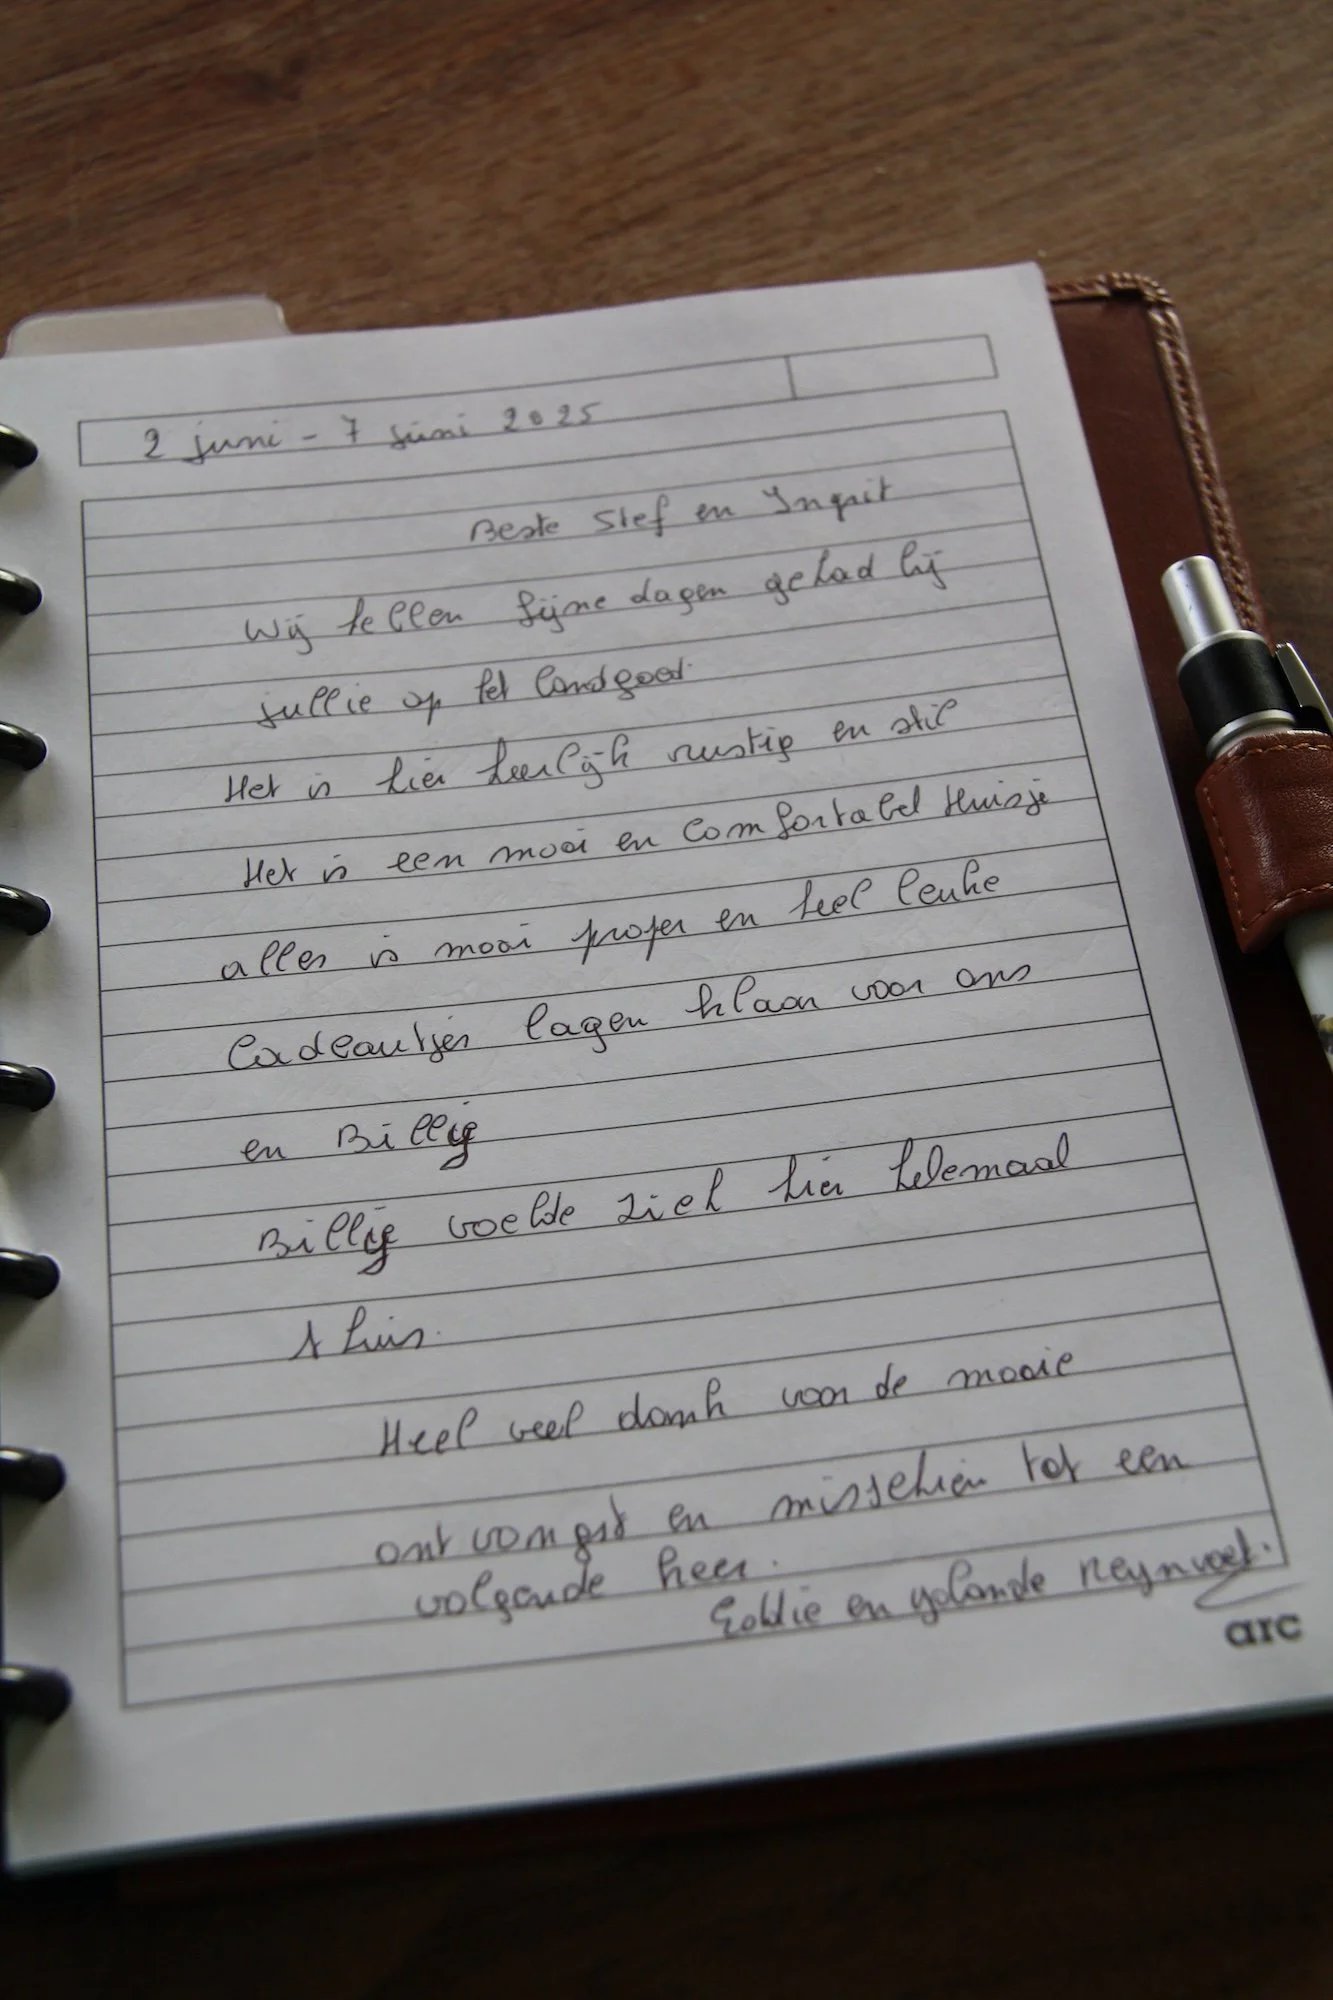 2 juni - 7 juni 2025
Beste Stef en Ingrit
Wij hebben fijne dagen gehad bij
jullie op het landgoed.
Het is hier heerlijk rustig en stil
Het is een mooi en Comfortabel Huisje
alles is mooi proper en heel leuke
Cadeautjes lagen klaar voor ons
en Billy
Billy voelde zich hier helemaal
thuis.
Heel veel dank voor de mooie
ontvangst en misschien tot een
volgende keer.
Eddie en yolande Reynvoet.
arc